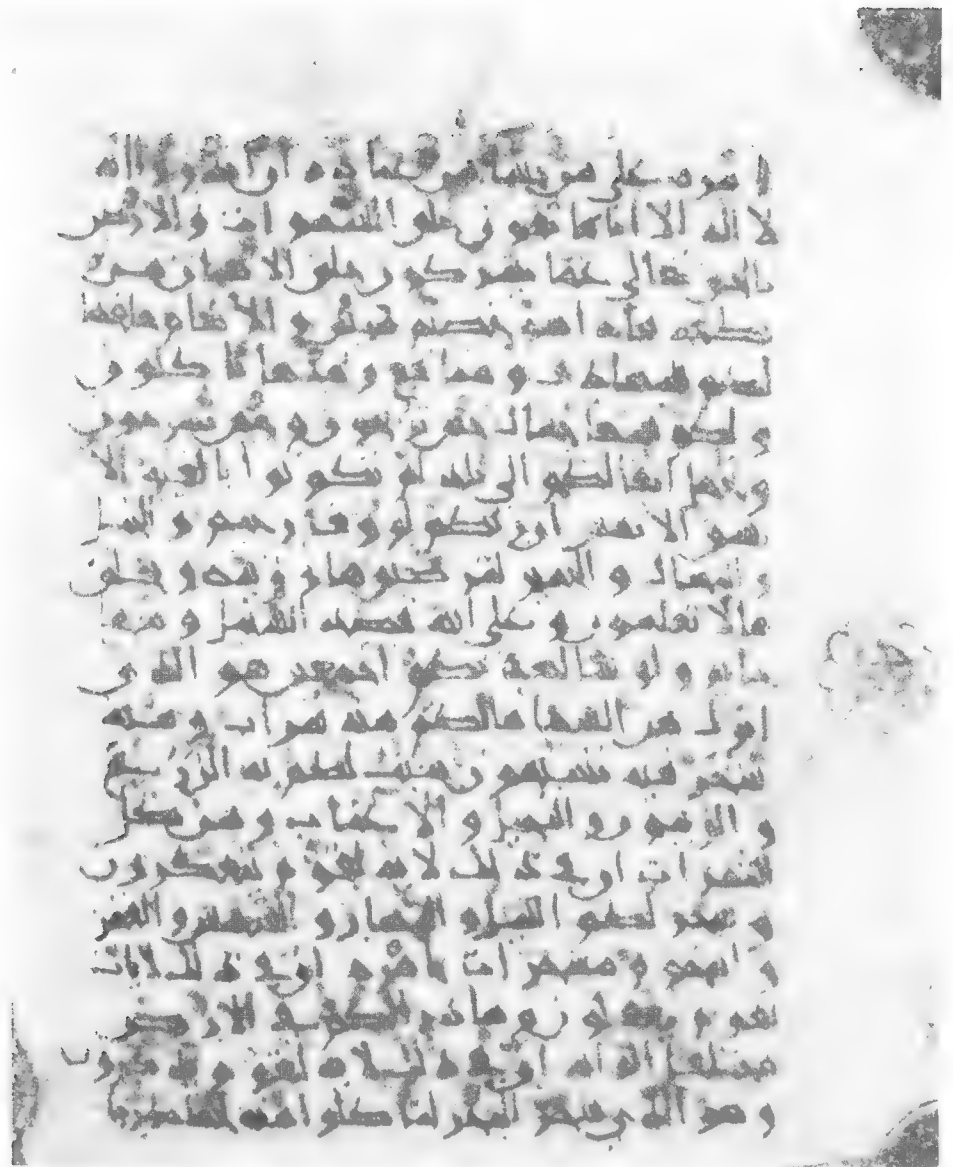 امره على من يشا من عباده ان انذروا انه
لا اله الا انا فاتقون خلق السموت والارض
بالحق تعالى عما يشركون خلق الانسن من
نطفة فاذا هو خصيم مبين والانعام خلقها
لكم فيها دف ومنافع ومنها تاكلون
ولكم فيها جمال حين تريحون وحين تسرحون
وتحمل اثقالكم الى بلد لم تكونوا بالغيه الا
بشق الانفس ان ربكم لروف رحيم والخيل
والبغال والحمير لتركبوها وزينة ويخلق
ما لا تعلمون وعلى الله قصد السبيل ومنها
جاير ولو شا لهديكم اجمعين هو الذي
انزل من السما ما لكم منه شراب ومنه
شجر فيه تسيمون ينبت لكم به الزرع
والزيتون والنخيل والاعناب ومن كل
الثمرات ان في ذلك لاية لقوم يتفكرون
وسخر لكم اليل والنهار والشمس والقمر
والنجوم مسخرات بامره ان في ذلك لايات
لقوم يعقلون وما ذرا لكم في الارض
مختلفا الوانه ان في ذلك لاية لقوم يذكرون
وهو الذي سخر البحر لتاكلوا منه لحما طريا